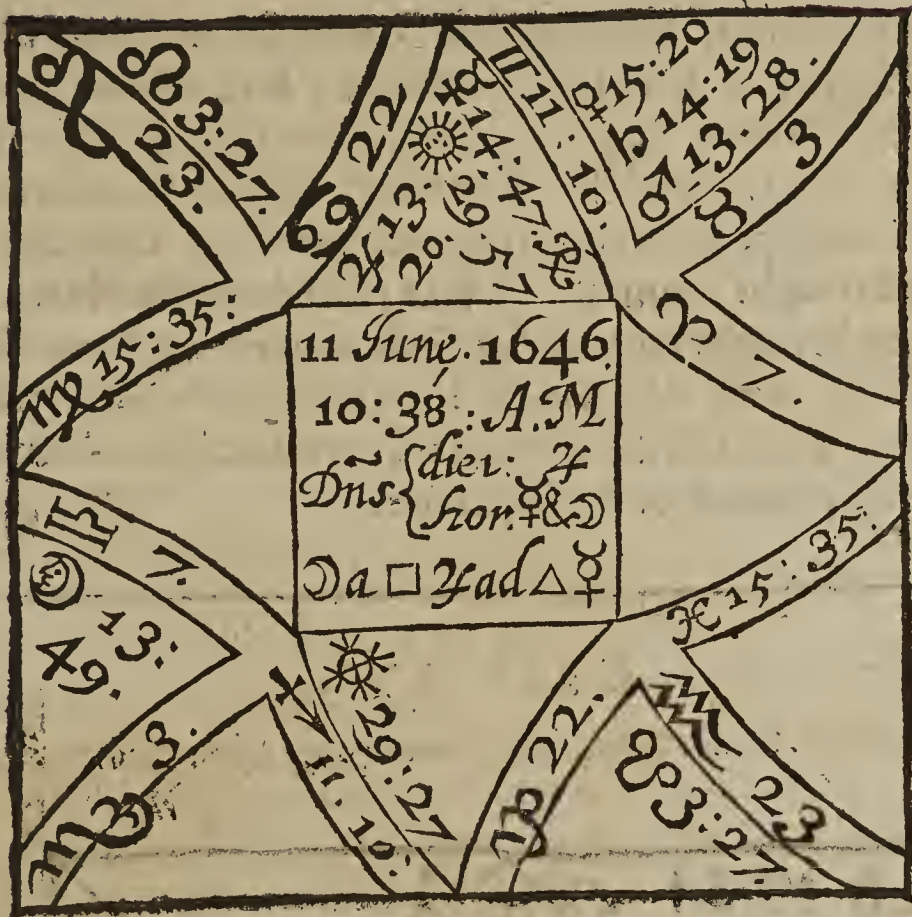 ♌ 23.
☊ 3:27.
♋ 22
☿ 14:47. ℞
☉ 29.57
♃ 13.
20.
♊ 11:10.
♀ 15:20
♄ 14:19
♂ 13.28.
♉ 3
♍ 15:35:
♈ 7.
11 June. 1646.
10:38: A.M
Dñs { diei: ♃
hor. ☿ & ☽
☽ a □ ♃ ad △ ☿
♎ 7.
☽ 13:
49.
♏ 3.
♐ 11.10:
⊗ 29:27
♑ 22.
♒ 23
☋ 3:27.
♓ 15:35: